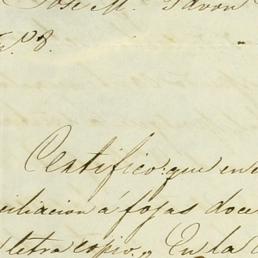 José M. Pavon
N.º 8.
Certifico: que en e
ciliacion á fojas doce
letra copio. „ En la